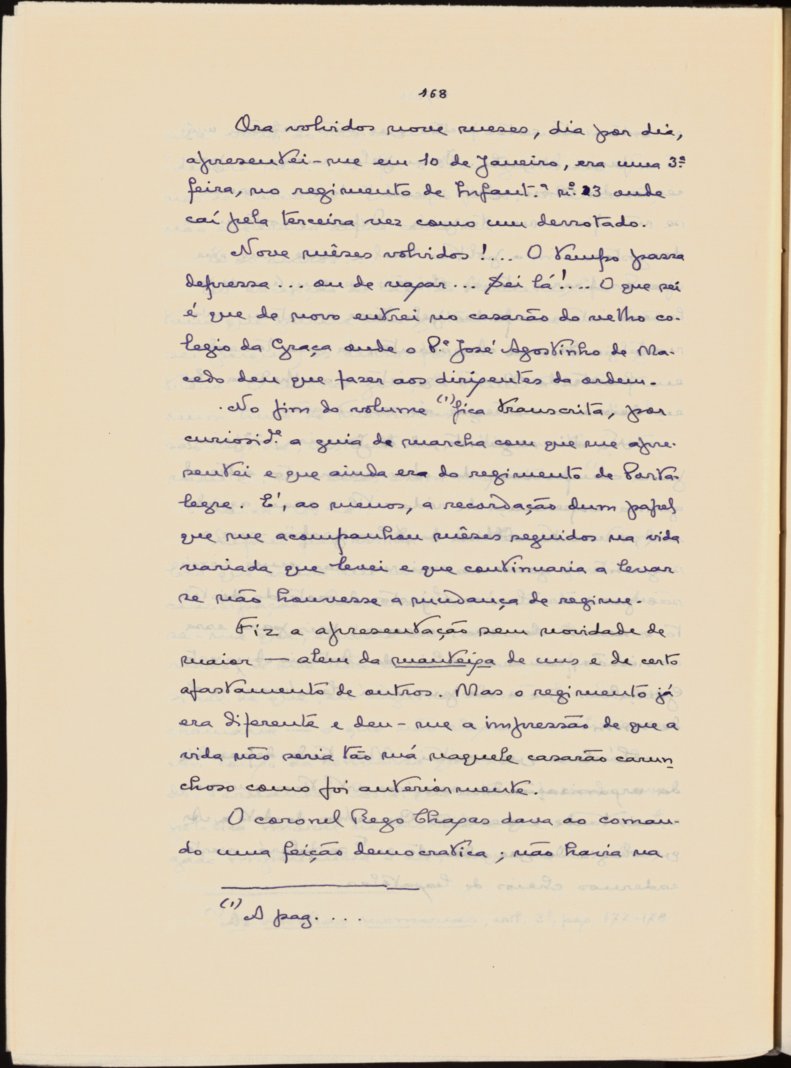 168
Ora volvidos nove meses, dia por dia,
apresentei-me em 10 de Janeiro, era uma 3.ª
feira, no regimento de Infant.ª n.º 23 onde
caí pela terceira vez como um derrotado.
Nove mêses volvidos!... O tempo passa
depressa... ou de vagar... Sei lá!... O que sei
é que de novo entrei no casarão do velho co-
legio da Graça onde o P.e José Agostinho de Ma-
cedo deu que fazer aos dirigentes da ordem.
No fim do volume (1) fica transcrita, por
curiosid.e a guia de marcha com que me apre-
sentei e que ainda era do regimento de Porta-
legre. É, ao menos, a recordação dum papel
que me acompanhou mêses seguidos na vida
variada que levei e que continuaria a levar
se não houvesse a mudança de regime.
Fiz a apresentação sem novidade de
maior — alem da manteiga de uns e de certo
afastamento de outros. Mas o regimento já
era diferente e deu-me a impressão de que a
vida não seria tão má naquele casarão carun-
choso como foi anteriormente.
O coronel Rego Chagas dava ao coman-
do uma feição democratica; não havia na
(1) A pag. ...